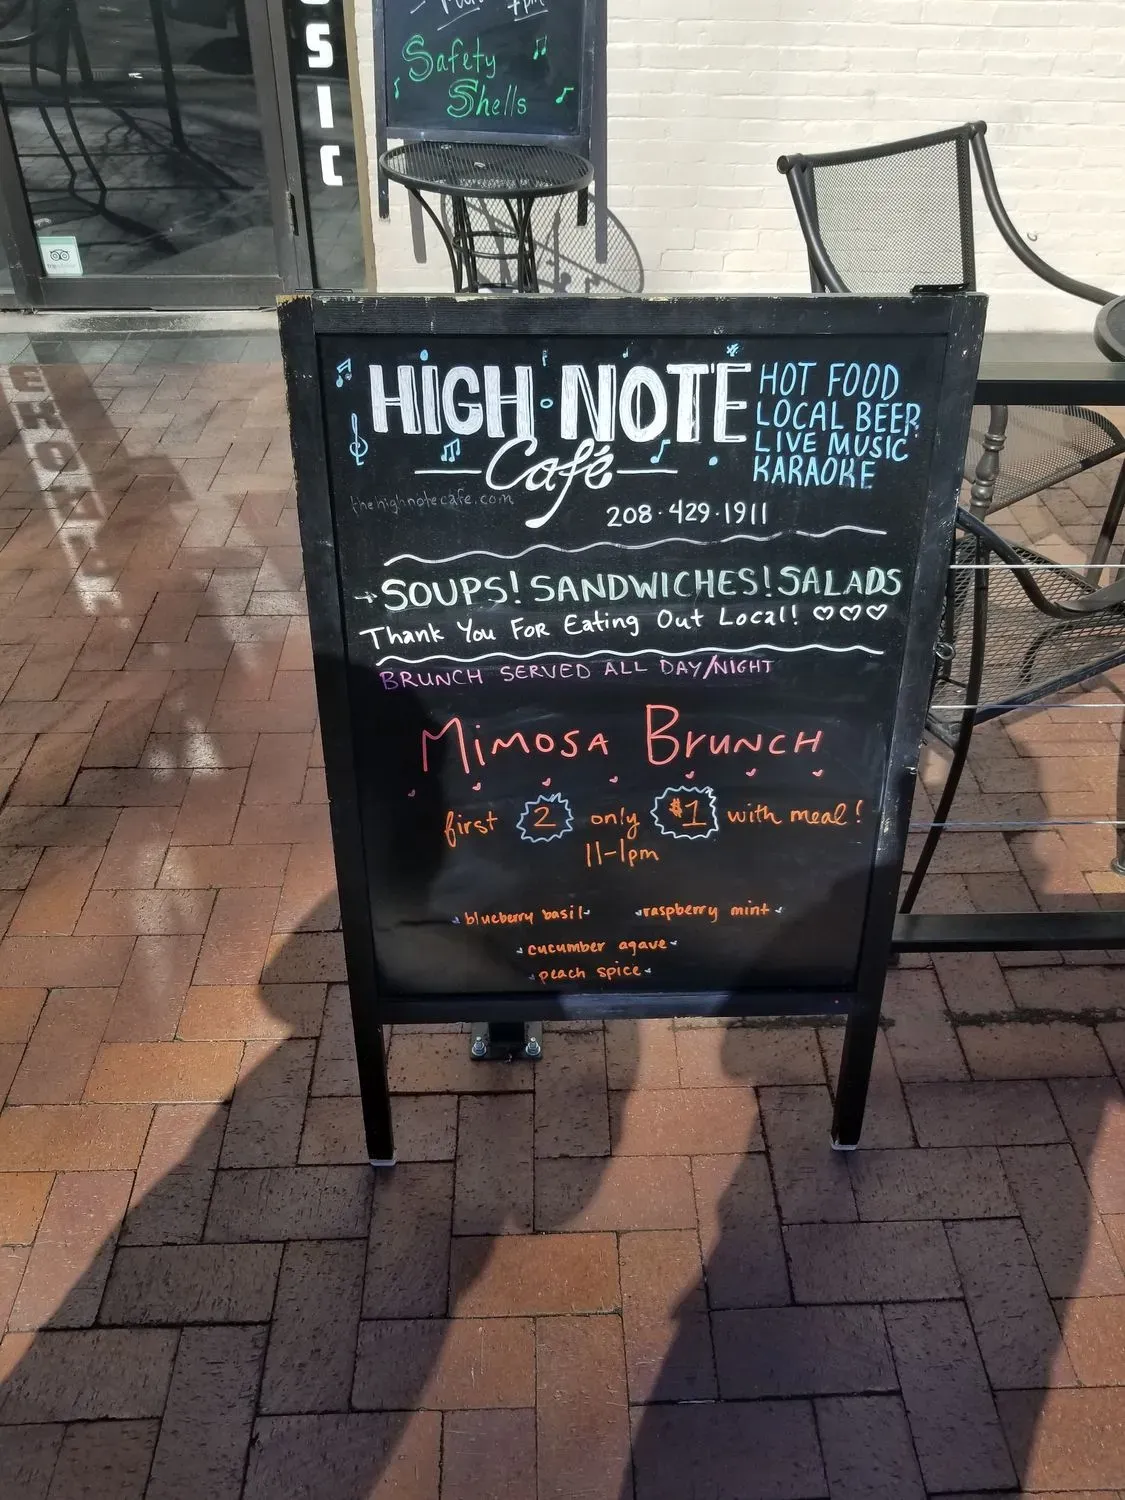 SIC
7pm
Safety
Shells
HIGH NOTE
Café
HOT FOOD
LOCAL BEER
LIVE MUSIC
KARAOKE
thehighnotecafe.com
208·429·1911
→SOUPS! SANDWICHES! SALADS
Thank You For Eating Out Local! ♡♡♡
BRUNCH SERVED ALL DAY/NIGHT
MiMOSA BrUNCH
first 2 only $1 with meal!
11-1pm
blueberry basil
raspberry mint
cucumber agave
peach spice